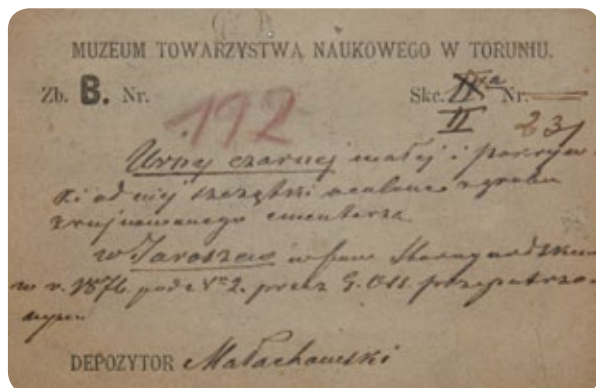 MUZEUM TOWARZYSTWA NAUKOWEGO W TORUNIU.
Zb. B. Nr. 192 Skc. II Nr.
231
Urny czarnej małej i pokryw-
ki od niej szczątki ocalone z grobu
zrujnowanego cmentarza
w Jaroszewie w pow. Starogardzkim
w r. 1876. pod No 2. przez G. Oss. przepatrzo-
nym
DEPOZYTOR Małachowski